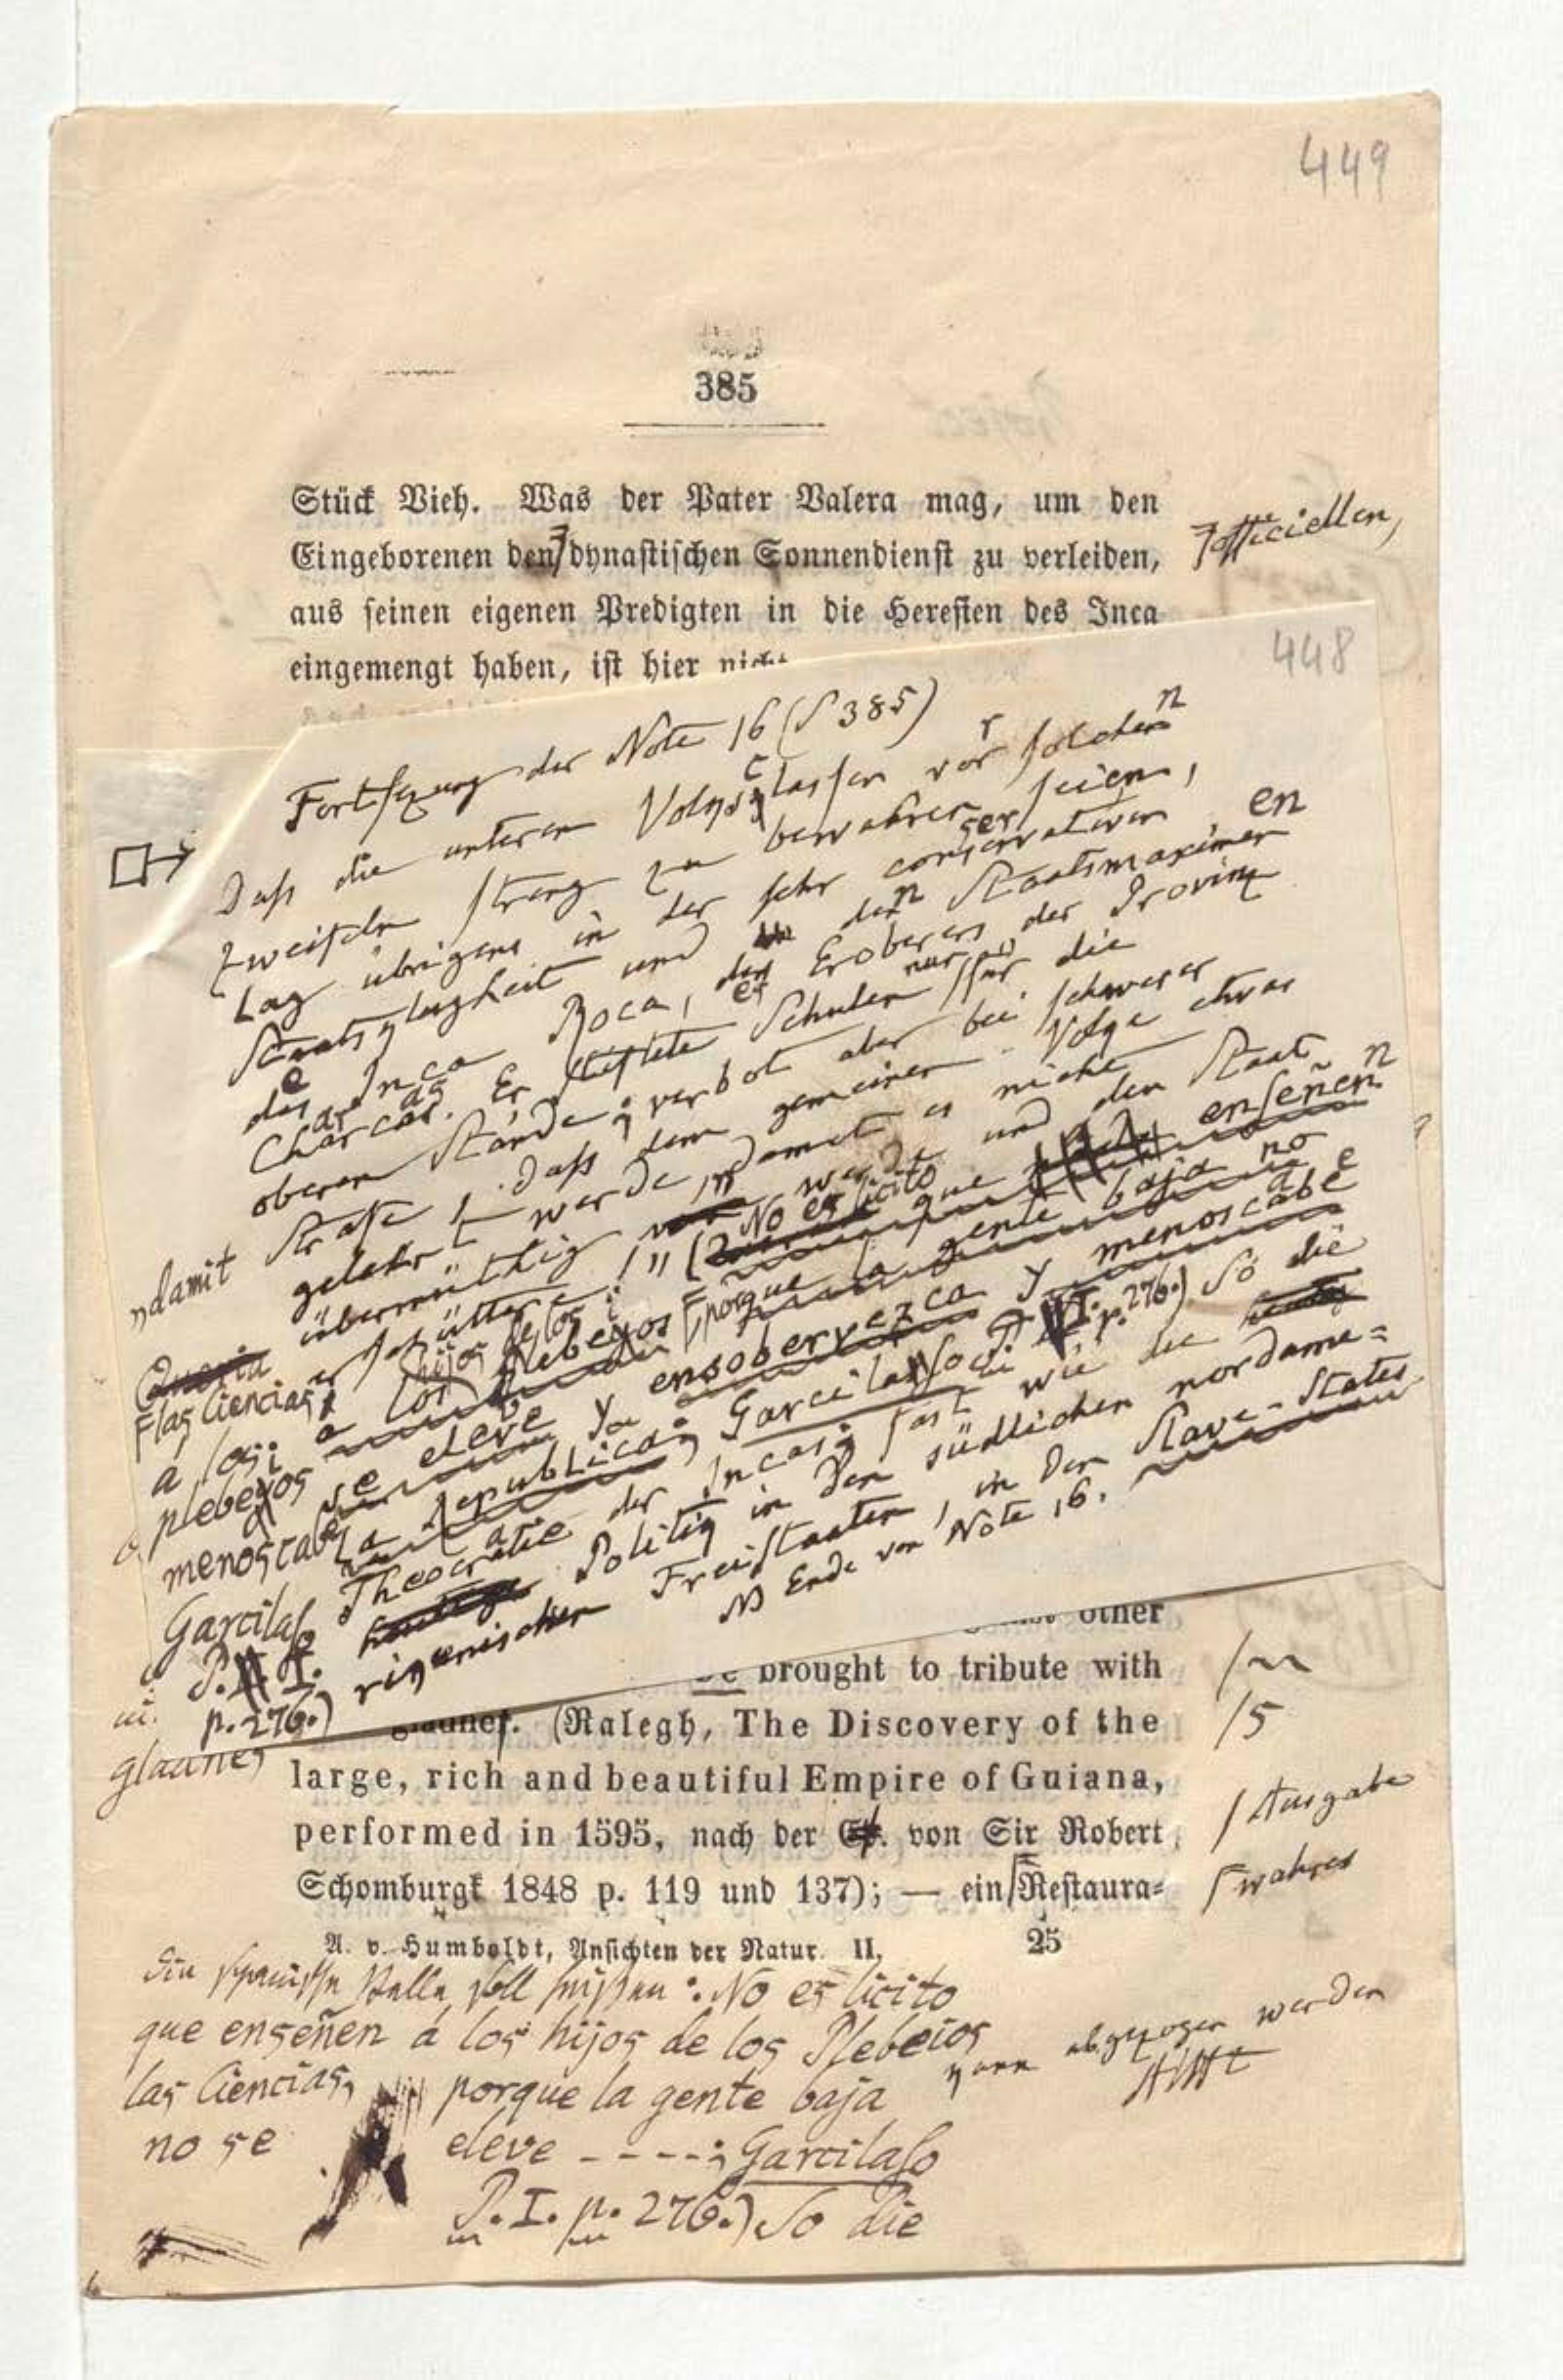 449
385
Stück Vieh. Was der Pater Valera mag, um den
Eingeborenen den dynastischen Sonnendienst zu verleiden,
officiellen,
aus seinen eigenen Predigten in die Heresien des Inca
eingemengt haben, ist hier nicht
448
Fortsezung der Note 16 (S 385)
Daß die unteren Volksclassen vor solchen
Zweifeln streng zu bewahren seien,
lag übrigens in der sehr conservativen
Staatsklugheit und den Staatsmaximen
des Inca Roca, des Eroberers der Provinz
Charcas. Er stiftete Schulen nur für die
oberen Stände; verbot aber bei schwerer
Strafe, daß dem gemeinen Volke etwas
gelehrt werde, „damit es nicht
übermüthig werde und den Staat
erschüttere!" (No es licito que enseñen
las Ciencias
a los hijos de los plebeyos porque la gente baja no
se eleve y ensobervezca y menoscabe
la republica; Garcilaso P. I. p. 276.) So die
Theocratie der Incas; fast wie die
Politik in den südlichen nordame=
rikanischen Freistaaten, in den Slave-States
NB Ende von Note 16.
„damit
Flas Ciencias
a los
plebeyos
menoscabe
Garcilaso
P. I.
p. 276.)
other
be brought to tribute with
glaunes
(Ralegh, The Discovery of the
/5
large, rich and beautiful Empire of Guiana,
performed in 1595, nach der von Sir Robert
/ Ausgabe
Schomburgk 1848 p. 119 und 137); — ein Restaura=
wahres
A. v. Humboldt, Ansichten der Natur. II.
25
Die spanische Stelle soll heißen: No es licito
que enseñen á los hijos de los Plebeios
las Ciencias, porque la gente baja
no se eleve - - - -; Garcilaso
P. I. p. 276.) So die
kann abgezogen werden
AlHt